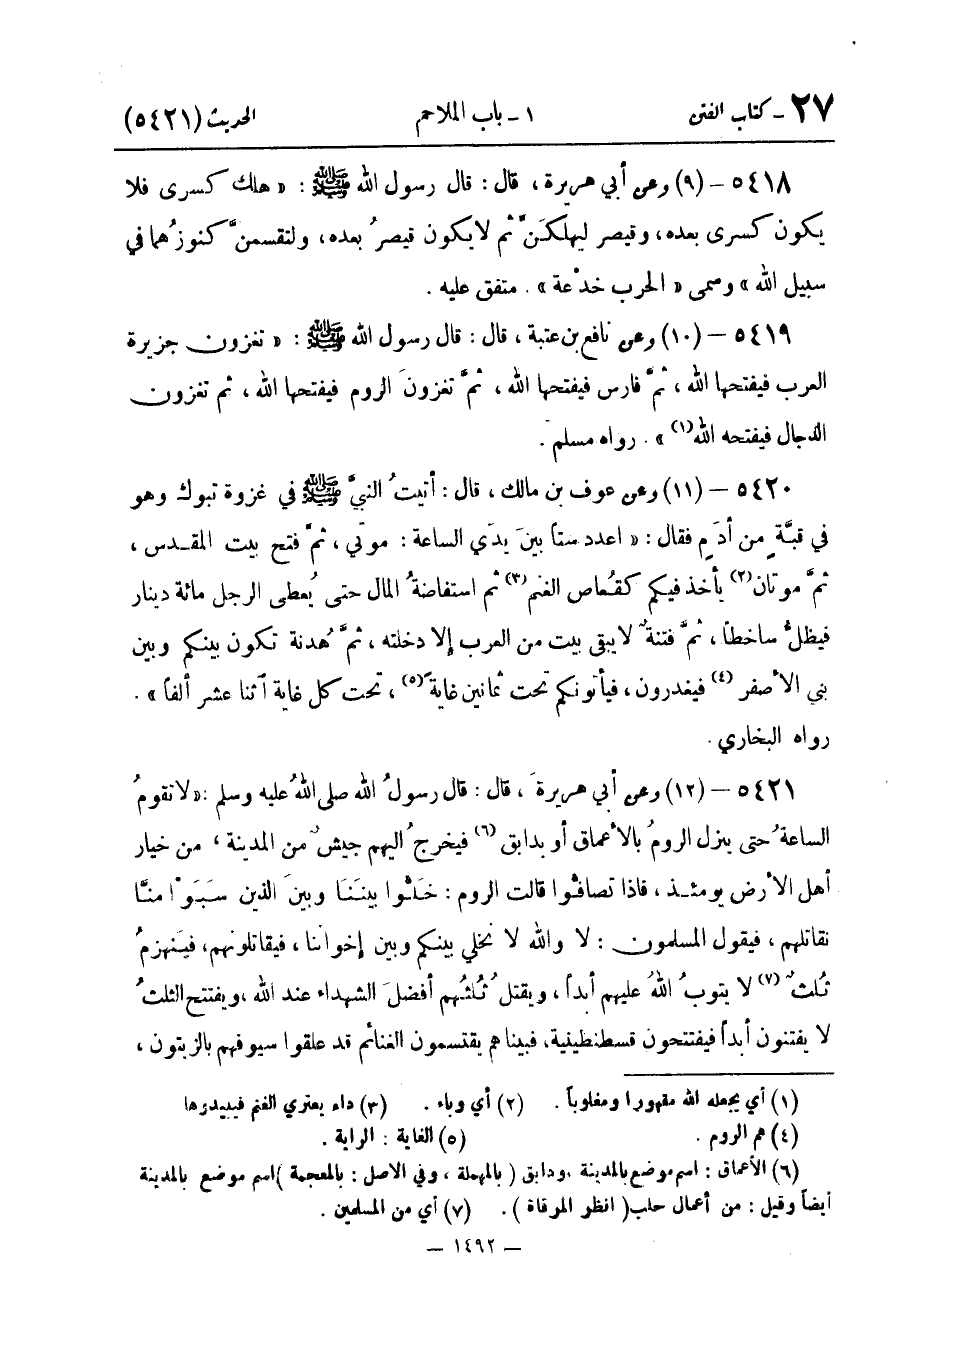 ٢٧ - كتاب الفتن ١ - باب الملاحم الحديث (٥٤٢١)
٥٤١٨ - (٩) وعن أبي هريرة ، قال : قال رسول الله ﷺ : « هلك كسرى فلا
يكون كسرى بعده، وقيصر ليهلكَنَّ ثم لا يكون قيصرُ بعده، ولتقسمنَّ كنوزُهما في
سبيل الله » وسمى « الحرب خدْعة » . متفق عليه .
٥٤١٩ - (١٠) وعن نافع بن عتبة ، قال : قال رسول الله ﷺ : « تغزون جزيرة
العرب فيفتحها الله ، ثمَّ فارس فيفتحها الله ، ثمَّ تغزونَ الروم فيفتحها الله ، ثم تغزون
الدجال فيفتحه الله(١) » . رواه مسلم .
٥٤٢٠ - (١١) وعن عوف بن مالك ، قال : أتيتُ النبيَّ ﷺ في غزوة تبوك وهو
في قبَّةٍ من أدَمٍ فقال : « اعدد ستاً بينَ يدَي الساعة : موتي ، ثمَّ فتح بيت المقدس ،
ثمَّ موتان(٢) يأخذ فيكم كقُعاص الغنم(٣) ثم استفاضةُ المال حتى يُعطى الرجل مائة دينار
فيظلُّ ساخطاً ، ثمَّ فتنةٌ لا يبقى بيت من العرب إلا دخلته ، ثمَّ هُدنة تكون بينكم وبين
بني الأصفر(٤) فيغدرون ، فيأتونكم تحت ثمانين غايةً(٥) ، تحت كل غاية اثنا عشر ألفاً » .
رواه البخاري .
٥٤٢١ - (١٢) وعن أبي هريرةَ ، قال : قال رسولُ الله صلى اللهُ عليه وسلم : « لا تقومُ
الساعةُ حتى ينزل الرومُ بالأعماق أو بدابق(٦) فيخرجُ اليهم جيشٌ من المدينة ، من خيار
أهل الأرض يومئذ ، فاذا تصافُّوا قالت الروم : خَلُّوا بينَنَا وبينَ الذين سَبَوْا منَّا
نقاتلهم ، فيقول المسلمون : لا والله لا نخلي بينكم وبين إخواننا ، فيقاتلونهم، فينهزمُ
ثلثٌ(٧) لا يتوبُ اللهُ عليهم أبداً ، ويقتل ثُلثُهم أفضلَ الشهداء عند الله ، ويفتتح الثلثُ
لا يفتنون أبداً فيفتتحون قسطنطينية، فبينا هم يقتسمون الغنائم قد علقوا سيوفهم بالزيتون ،
(١) أي يجعله الله مقهوراً ومغلوباً . (٢) أي وباء . (٣) داء يعتري الغنم فيبيدرها
(٤) هم الروم . (٥) الغاية : الراية .
(٦) الأعماق : اسم موضع بالمدينة ، ودابق ( بالمهملة ، وفي الاصل : بالمعجمة ) اسم موضع بالمدينة
أيضاً وقيل : من أعمال حلب ( انظر المرقاة ) . (٧) أي من المسلمين .
— ١٤٩٢ —